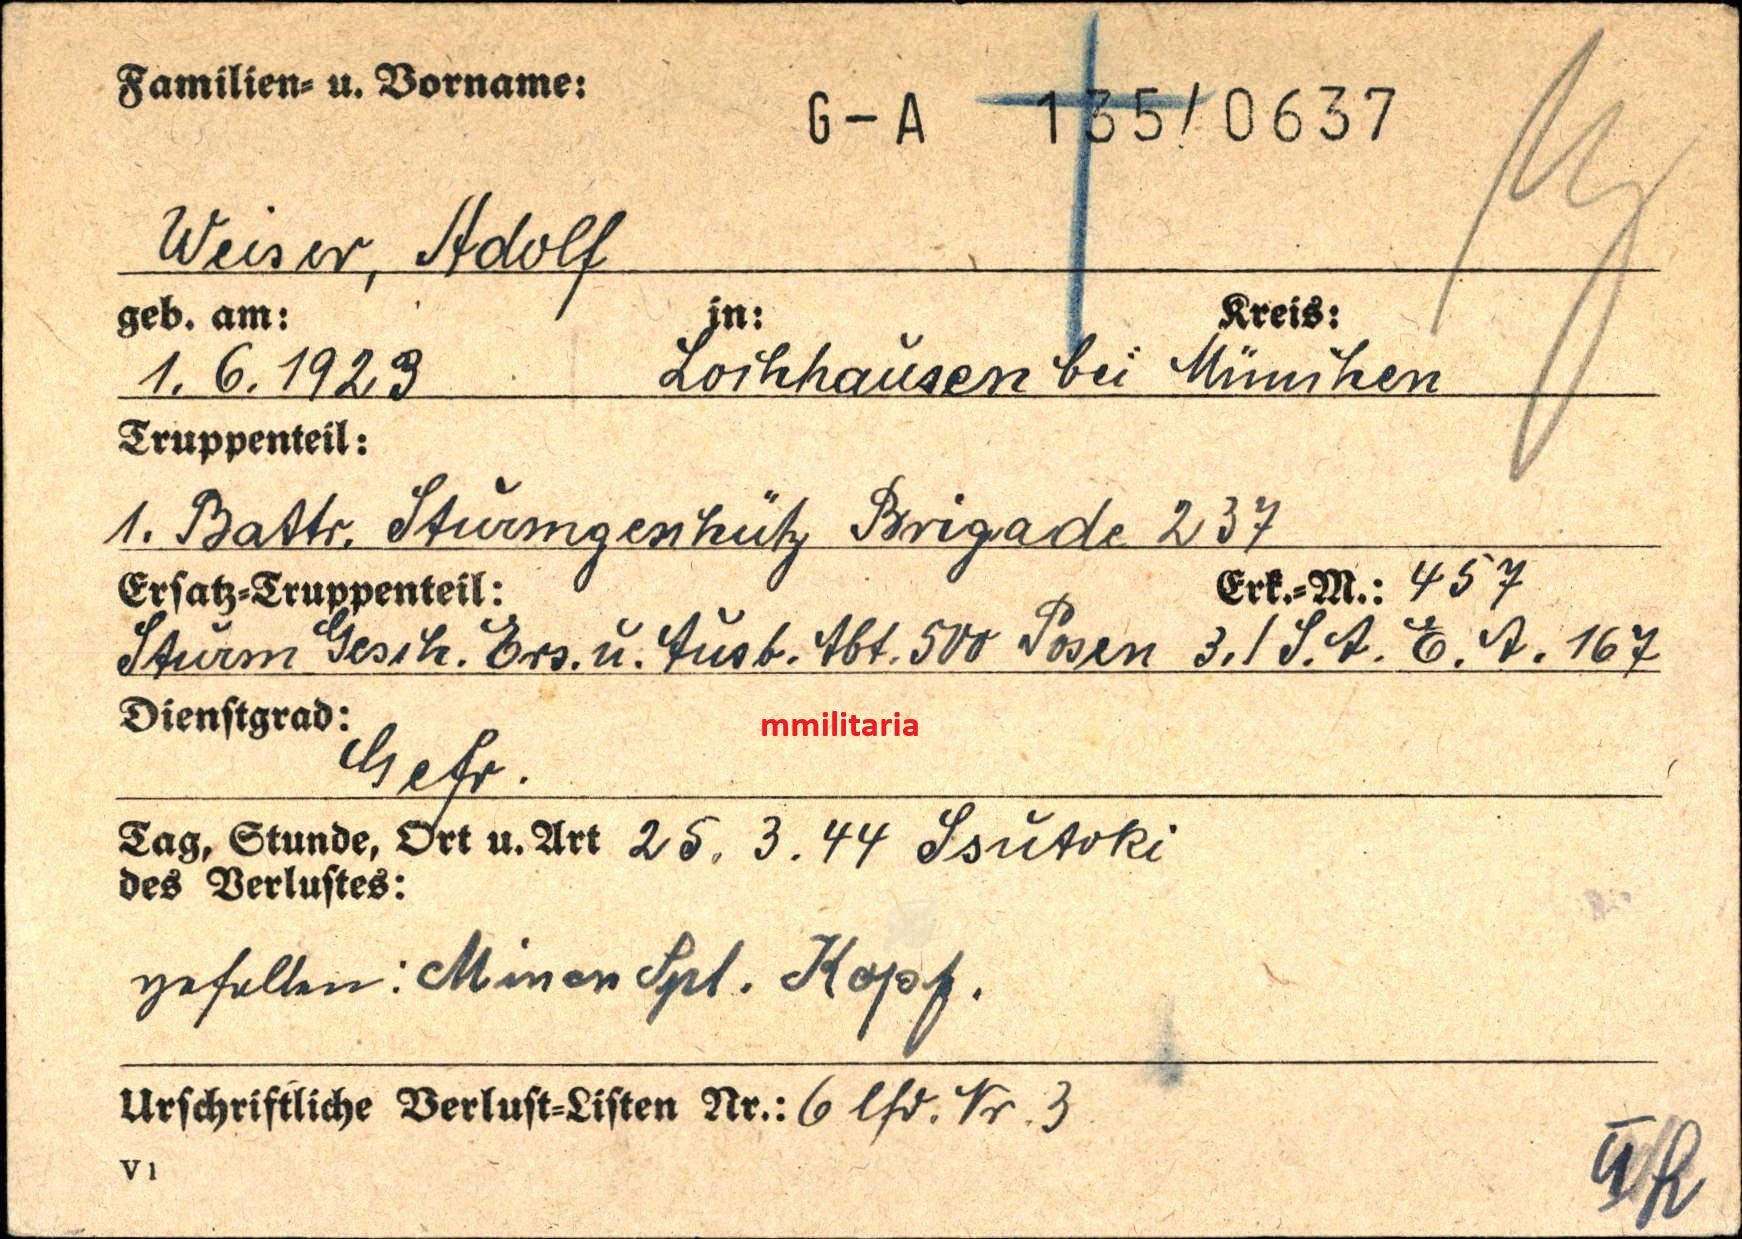 Familien- u. Vorname:
G-A 135/0637
Weiser, Adolf
geb. am: in: Kreis:
1.6.1923 Lochhausen bei München
Truppenteil:
1. Battr. Sturmgeschütz Brigade 237
Ersatz-Truppenteil: Erk.-M.: 457
Sturm Gesch. Ers. u. Ausb. Abt. 500 Posen 3./S.A.E.A. 167
Dienstgrad:
Gefr.
mmilitaria
Tag, Stunde, Ort u. Art 25.3.44 Isutoki
des Verlustes:
gefallen: Minen Spl. Kopf.
Urschriftliche Verlust-Listen Nr.: 6 lfd. Nr. 3
V1